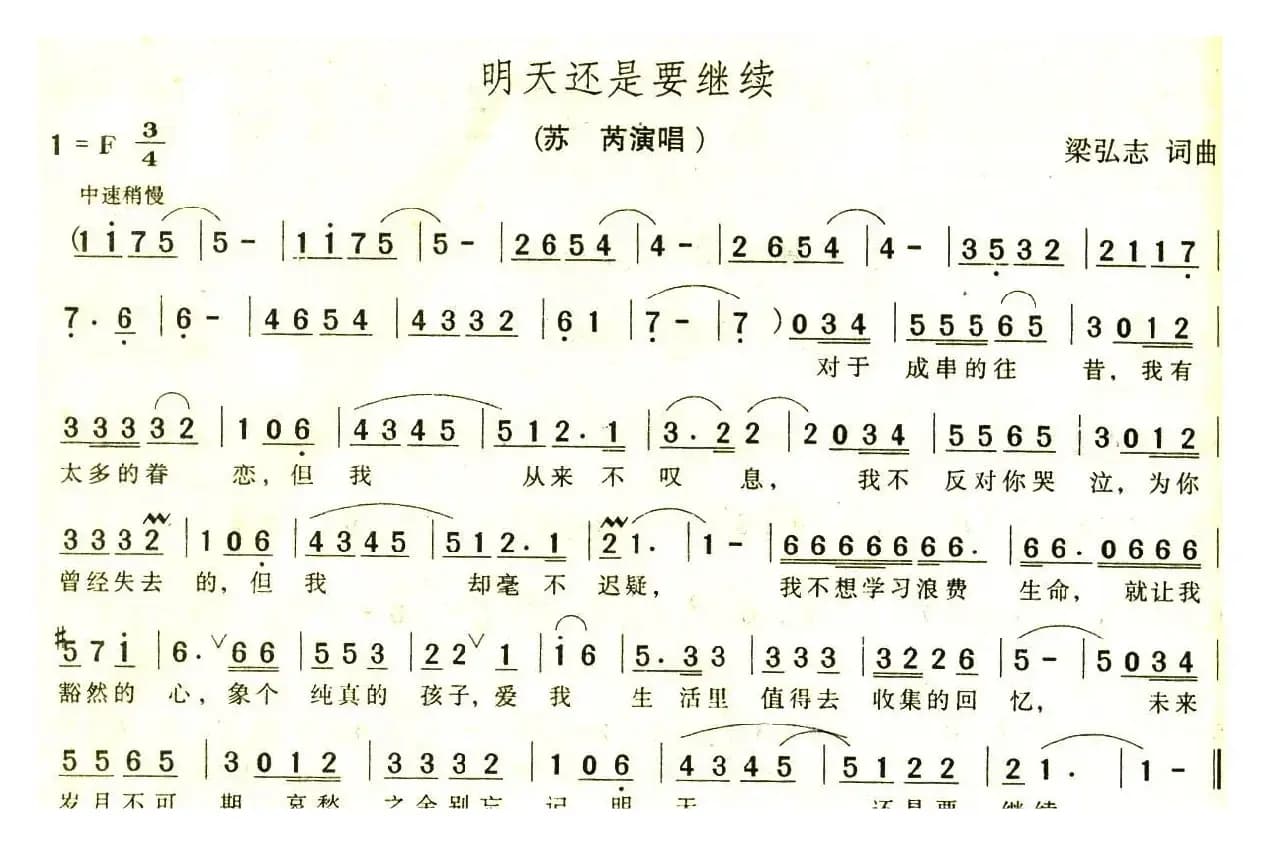 明天还是要继续
(苏 芮演唱)
1 = F 3/4
梁弘志 词曲
中速稍慢
(1 i 7 5 | 5 - | 1 i 7 5 | 5 - | 2 6 5 4 | 4 - | 2 6 5 4 | 4 - | 3 5 3 2 | 2 1 1 7 |
7 · 6 | 6 - | 4 6 5 4 | 4 3 3 2 | 6 1 | 7 - | 7 ) 0 3 4 | 5 5 5 6 5 | 3 0 1 2
对于 成串的往 昔, 我有
3 3 3 3 2 | 1 0 6 | 4 3 4 5 | 5 1 2 · 1 | 3 · 2 2 | 2 0 3 4 | 5 5 6 5 | 3 0 1 2
太多的眷 恋, 但 我 从来 不 叹 息, 我不 反对你哭 泣, 为你
3 3 3 2 | 1 0 6 | 4 3 4 5 | 5 1 2 · 1 | 2 1 · | 1 - | 6 6 6 6 6 6 6 · | 6 6 · 0 6 6 6
曾经失去 的, 但 我 却毫 不 迟疑, 我不想学习浪费 生命, 就让我
#5 7 i | 6 · ∨ 6 6 | 5 5 3 | 2 2 ∨ 1 | i 6 | 5 · 3 3 | 3 3 3 | 3 2 2 6 | 5 - | 5 0 3 4
豁然的 心, 象个 纯真的 孩子, 爱 我 生 活里 值得去 收集的回 忆, 未来
5 5 6 5 | 3 0 1 2 | 3 3 3 2 | 1 0 6 | 4 3 4 5 | 5 1 2 2 | 2 1 · | 1 - ‖
岁月不可 期 哀愁 之余别忘 记 明 天 还是要 继续